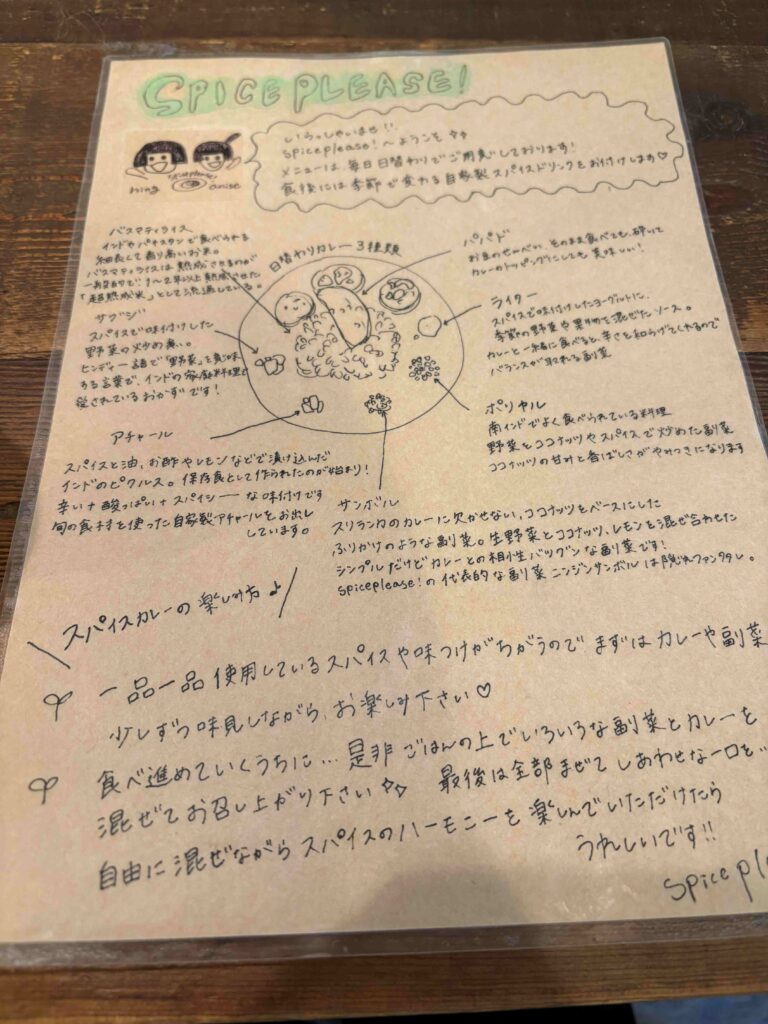 SPICE PLEASE!
いらっしゃいませ!!
spiceplease!〜ようこそ
メニューは、毎日日替わりでご用意しております!
食後には季節で変わる自家製スパイスドリンクをお付けします♡
ming
spiceplease!
anise
バスマティライス
インドやパキスタンで食べられる
細長くて香り高いお米。
バスマティライスは熟成させるのが
一般的で、1〜2年以上熟成させた
「超熟成米」として流通している。
日替わりカレー3種類
パパド
お豆のせんべい。そのまま食べても、砕いて
カレーのトッピングにしても美味しい!
ライター
スパイスで味付けしたヨーグルトに、
季節の野菜や果物を混ぜたソース。
カレーと一緒に食べると、辛さを和らげてくれるので
バランスが取れる副菜
サブジ
スパイスで味付けした
野菜の炒め煮。
ヒンディー語で「野菜」を意味
する言葉で、インドの家庭料理で
愛されているおかずです!
ポリヤル
南インドでよく食べられている料理
野菜とココナッツやスパイスで炒めた副菜
ココナッツの甘みと香ばしさがやみつきになります
アチャール
スパイスと油、お酢やレモンなどで漬け込んだ
インドのピクルス。保存食として作られたのが始まり!
辛い+酸っぱい+スパイシーな味付けです
旬の食材を使った自家製アチャールをお出し
しています。
サンボル
スリランカのカレーに欠かせない、ココナッツをベースにした
ふりかけのような副菜。生野菜とココナッツ、レモンを混ぜ合わせた
シンプルだけどカレーとの相性バツグンな副菜です!
spiceplease!の代表的な副菜ニンジンサンボルは隠れファンタタレ。
スパイスカレーの楽しみ方♪
一品一品使用しているスパイスや味つけがちがうので まずはカレーや副菜
少しずつ味見しながら、お楽しみ下さい♡
食べ進めていくうちに...是非ごはんの上でいろいろな副菜とカレーを
混ぜてお召し上がり下さい 最後は全部まぜてしあわせな一口を..
自由に混ぜながらスパイスのハーモニーを楽しんでいただけたら
うれしいです!!
spice pl